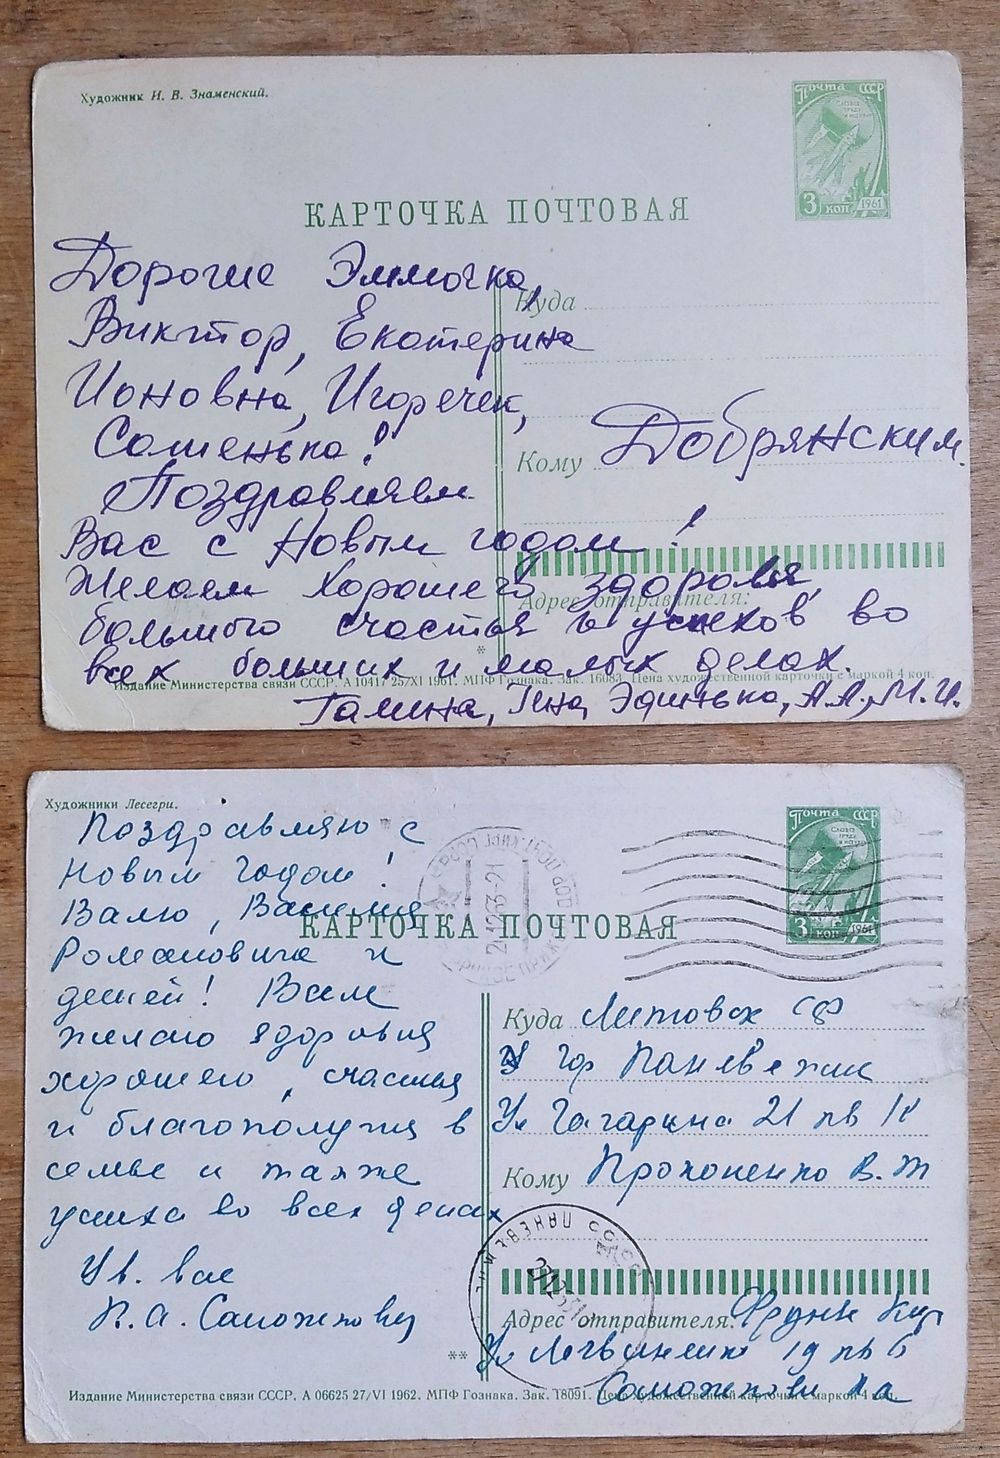 Художник И. В. Знаменский.
Почта СССР
3 коп 1961
КАРТОЧКА ПОЧТОВАЯ
Дорогие Эммочка,
Виктор, Екатерина
Ионовна, Игоречек,
Сашенька!
Поздравляем
Вас с Новым годом!
Желаем хорошего здоровья,
большого счастья и успехов во
всех больших и малых делах.
Галина, Гена, А.А., М.И.
Куда
Кому Добрянским.
Адрес отправителя:
*
Издание Министерства связи СССР, А 10417 25/XI 1961. МПФ Гознака. Зак. 16083. Цена художественной карточки с маркой 4 коп.
Художники Лесегри.
Почта СССР
Слава труду и науке
3 коп 1961
КАРТОЧКА ПОЧТОВАЯ
Поздравляю с
Новым годом!
Валю, Василия
Романовича и
детей! Вам
желаю здоровья
хорошего, счастья
и благополучия в
семье и также
успеха во всех делах
Ув. вас
П.А.
Куда Литовск
гор Паневежис
Ул Гагарина 21 кв
Кому Прокопенко В.
Адрес отправителя: Фрунзе Кир
Ул 19 кв 6
**
Издание Министерства связи СССР, А 06625 27/VI 1962. МПФ Гознака. Зак. 18091. Цена художественной карточки с маркой 4 коп.